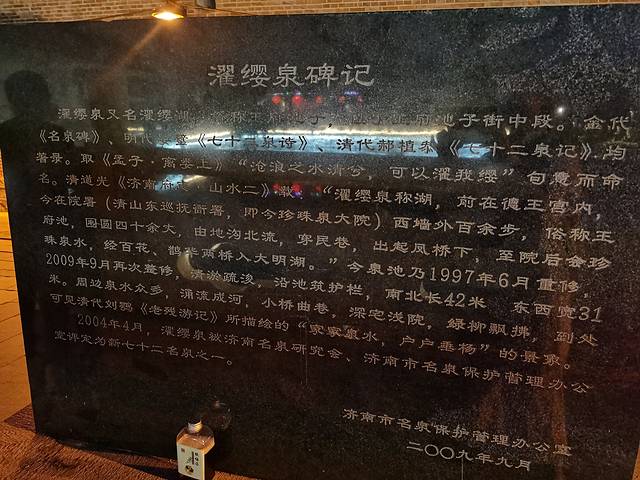 濯缨泉碑记
濯缨泉又名濯缨湖，俗称王府池子，位于王府池子街中段。金代
《名泉碑》、明代晏璧《七十二泉诗》、清代郝植恭《七十二泉记》均
著录。取《孟子·离娄上》“沧浪之水清兮，可以濯我缨”句意而命
名。清道光《济南府志·山水二》载：“濯缨泉称湖，前在德王宫内，
今在院署（清山东巡抚衙署，即今珍珠泉大院）西墙外百余步，俗称王
府池，围圆四十余丈，由地沟北流，穿民巷，出起凤桥下，至院后会珍
珠泉水，经百花、鹊华两桥入大明湖。”今泉池乃1997年6月重修，
2009年9月再次整修，清淤疏浚，沿池筑护栏，南北长42米 东西宽31
米。周边泉水众多，涌流成河，小桥曲巷，深宅浅院，绿柳飘拂，到处
可见清代刘鹗《老残游记》所描绘的“家家泉水，户户垂杨”的景象。
2004年4月，濯缨泉被济南名泉研究会、济南市名泉保护管理办公
室评定为新七十二名泉之一。
济南市名泉保护管理办公室
二〇〇九年九月